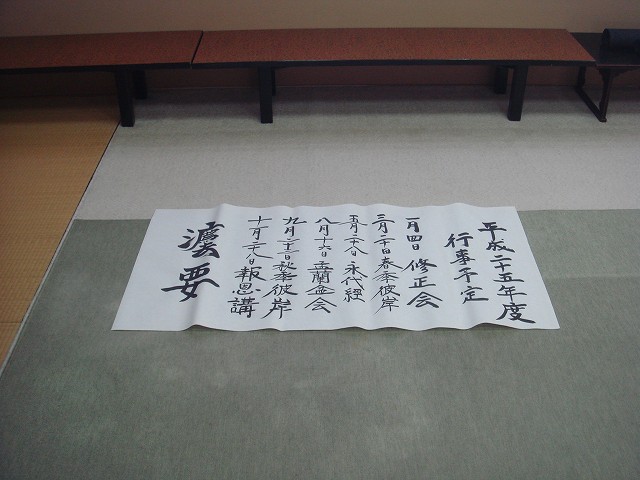 平成二十五年度
行事予定
一月四日 修正会
三月二十日 春季彼岸
五月二十八日 永代経
八月十六日 盂蘭盆会
九月二十三日 秋季彼岸
十月二十八日 報恩講
灋要